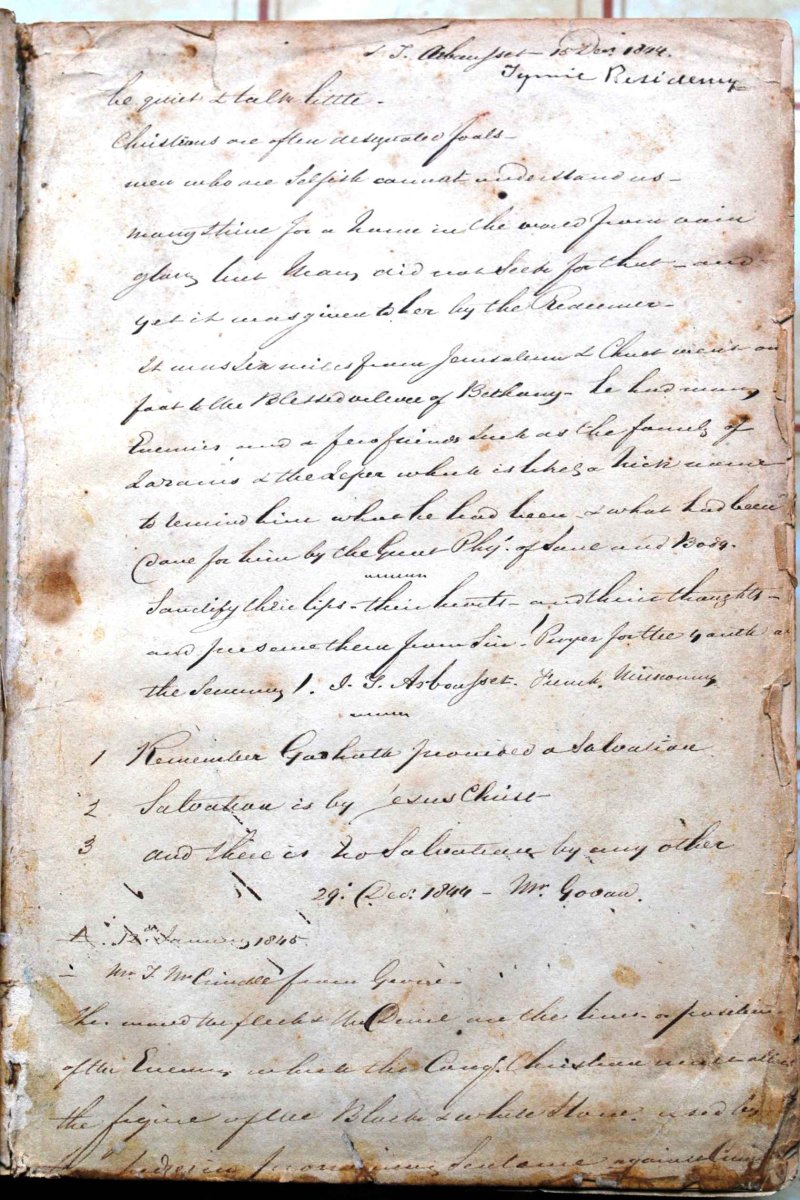 J. T. Arbousset 15 Dec. 1844.
Tyumie Residency
be quiet & talk little -
Christians are often designated fools -
men who are Selfish cannot understand us -
many strive for a name in the world from vain
glory but Mary did not Seek for that - and
yet it was given to her by the Redeemer -
It was six miles from Jerusalem & Christ went on
foot to the Blessed village of Bethany - he had many
Enemies and a few friends such as the family of
Lazarus & the Leper which is likely a nick name
to remind him what he had been & what had been
Done for him by the Great Phy. of Soul and Body.
Sanctify their lips - their hearts - and their thoughts -
and preserve them from Sin! Prayer for the youth at
the Seminary! J. T. Arbousset. French Missionary
1 Remember God hath promised a Salvation
2 Salvation is by Jesus Christ
3 and there is no Salvation by any other
29. Dec. 1844 - Mr. Govan.
12th January 1845.
- Mr. J. McCrindle from
The world the flesh & the Devil are the lines or position
of the Enemy which the Christian must
the figure of the Black & white Stone used by
judges in Sentence against